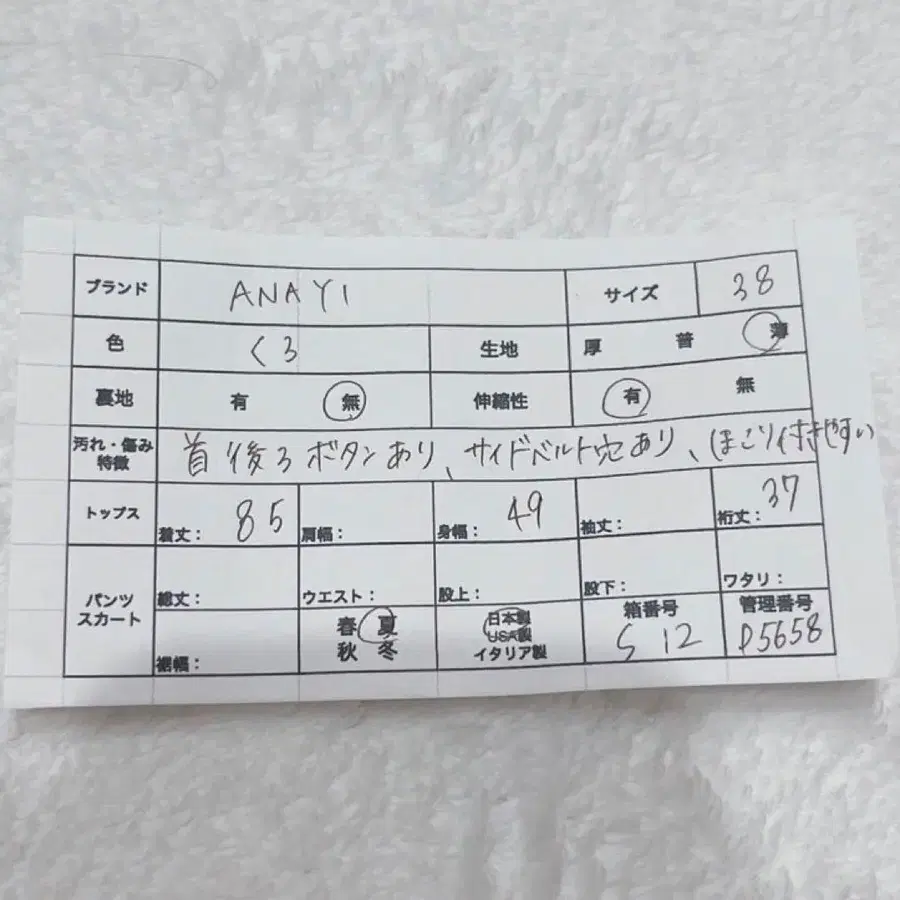 ブランド ANAYI サイズ 38
色 くろ 生地 厚 普 薄
裏地 有 無 伸縮性 有 無
汚れ・傷み
特徴 首後ろボタンあり、サイドベルト穴あり、ほこり付きやすい
トップス 着丈: 85 肩幅: 身幅: 49 袖丈: 裄丈: 37
パンツ
スカート 総丈: ウエスト: 股上: 股下: ワタリ:
裾幅: 春 夏
秋 冬
日本製
USA製
イタリア製
箱番号
S 12
管理番号
D5658